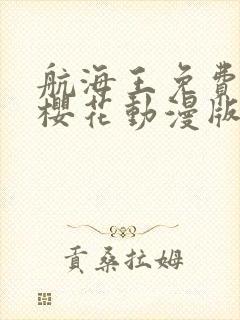 航海王免費
櫻花動漫版
貢桑拉姆